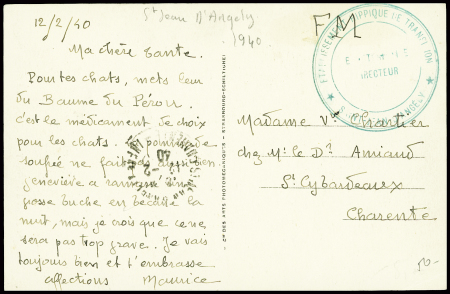 12/2/40
St Jean D'Angely
1940
FM
Ma chère tante.
Pour tes chats, mets leur
du Baume du Pérou.
c'est le médicament de choix
pour les chats. La pommade
soufrée ne fait
Geneviève a ramassé une
grosse buche en bécane la
nuit, mais je crois que ce ne
sera pas trop grave. Je vais
toujours bien et t'embrasse
affections Maurice
Cie DES ARTS PHOTOMÉCANIQUES - STRASBOURG-SCHILTIGHEIM
HIPPIQUE DE TRANSITION
DIRECTEUR
Madame Ve Chartier
chez M. le Dr Amiaud
St Cybardeaux
Charente
50-